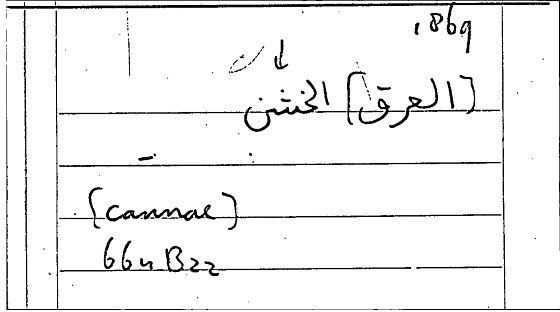 ,869
[العرق] الخشن
[cannae]
66u B22